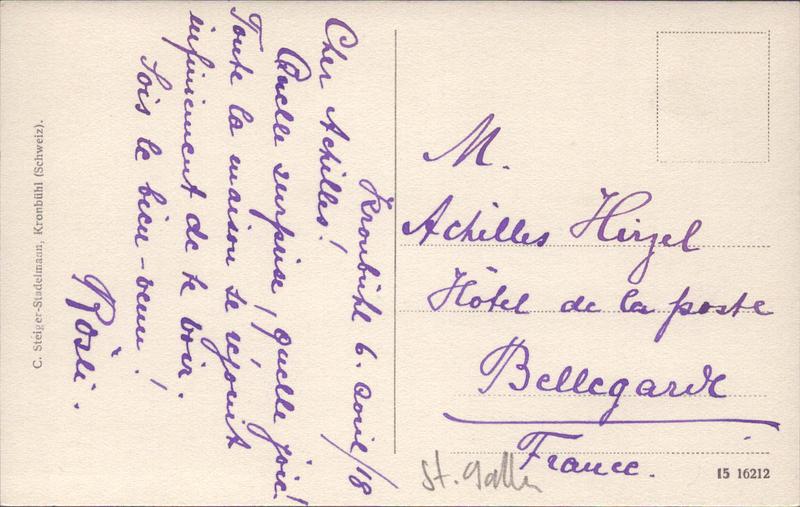 Kronbühl 6. avril/18
Cher Achilles!
Quelle surprise! quelle joie!
Toute la maison se réjouit
infiniement de te voir.
Sois le bien-venu!
Rösli.
C. Steiger-Stadelmann, Kronbühl (Schweiz).
M.
Achilles Hirzel
Hôtel de la poste
Bellegarde
France.
St. Gallen
15 16212